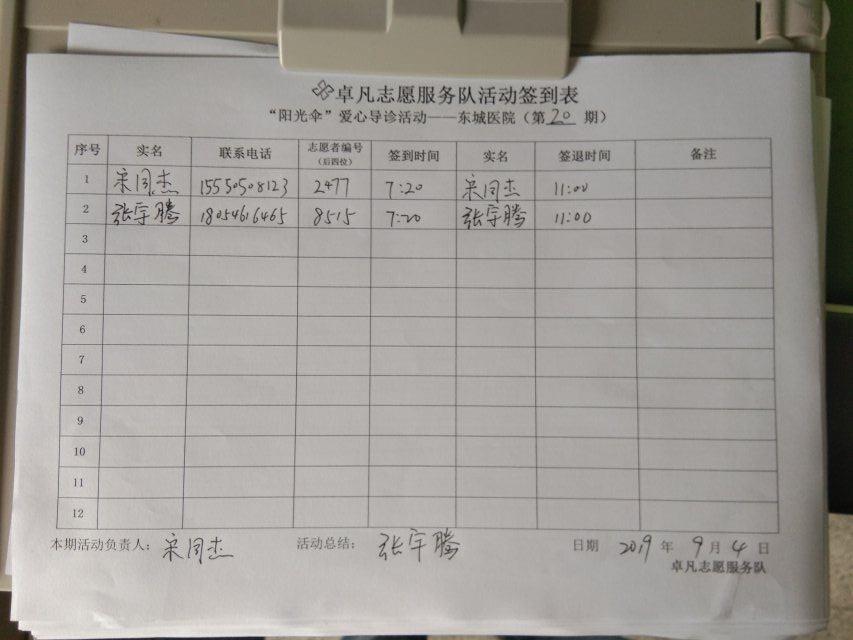 卓凡志愿服务队活动签到表
“阳光伞”爱心导诊活动——东城医院（第20期）
序号 实名 联系电话 志愿者编号（后四位） 签到时间 实名 签退时间 备注
1 宋同杰 15550508123 2477 7:20 宋同杰 11:00
2 张宇腾 18054616465 8515 7:20 张宇腾 11:00
3
4
5
6
7
8
9
10
11
12
本期活动负责人：宋同杰 活动总结：张宇腾 日期 2019年9月4日
卓凡志愿服务队